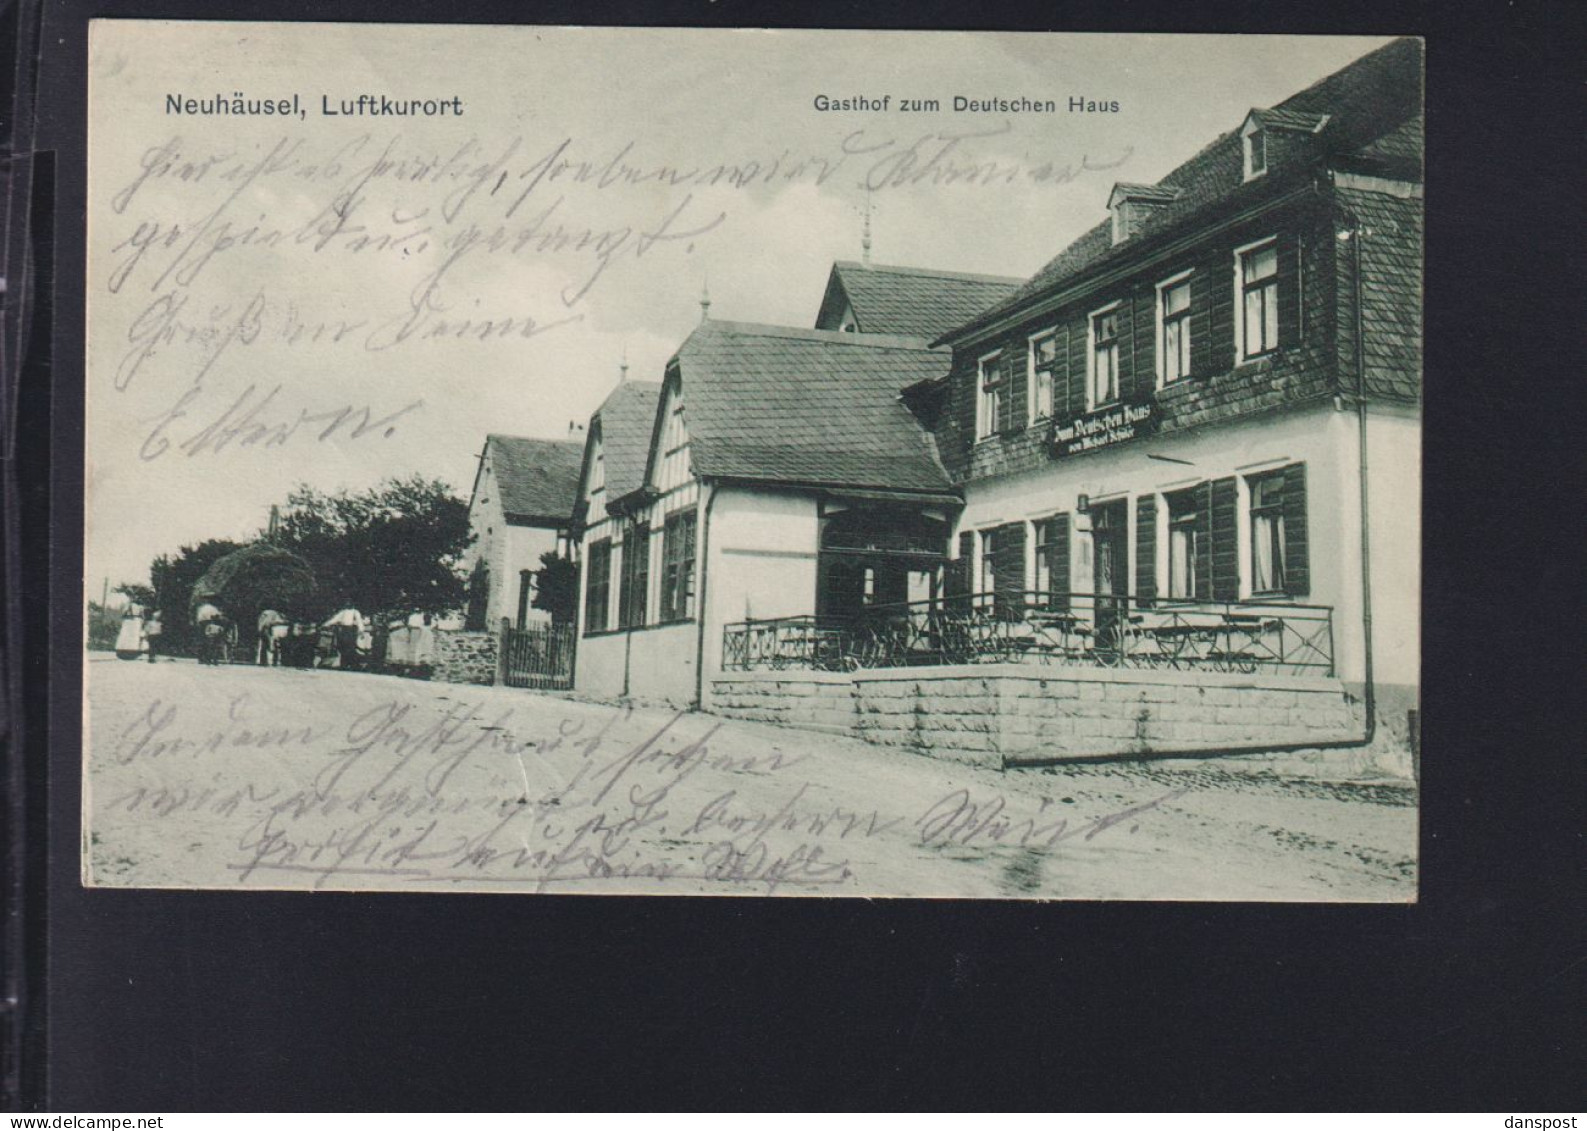 Neuhäusel, Luftkurort
Gasthof zum Deutschen Haus
Hier ist es herrlich, soeben wird Klavier
gespielt u. getanzt.
Gruß an Deine
Eltern.
Zum Deutschen Haus
von Michael
In dem Gasthaus sitzen
wir vergnügt b. besserm Wein.
Prosit auf dein Wohl.
www.delcampe.net
danspost